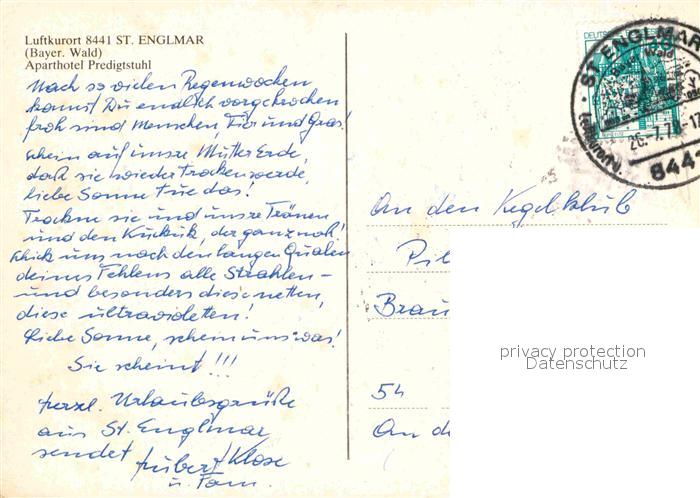 Luftkurort 8441 ST. ENGLMAR
(Bayer. Wald)
Aparthotel Predigtstuhl
Nach so vielen Regenwochen
kommst Du endlich vorgekrochen
froh sind Menschen, Tier und Gras!
Schein auf unsre Mutter Erde,
daß sie wieder trocken werde,
liebe Sonne tue das!
Trockne sie und unsre Tränen
und den Kuckuk, der ganz naß!
Schick uns nach den langen Qualen
deines Fehlens alle Strahlen –
und besonders diese netten,
diese ultravioletten!
Liebe Sonne, schein uns was!
Sie scheint!!!
Herzl. Urlaubsgrüße
aus St. Englmar
sendet Hubert Klose
u. Fam.
DEUTSCHE
ST. ENGLMAR
Bayer. Wald
Luftkurort
26.-7.7
8441
An den Kegelklub
Pil
Brau
54
An de
privacy protection
Datenschutz